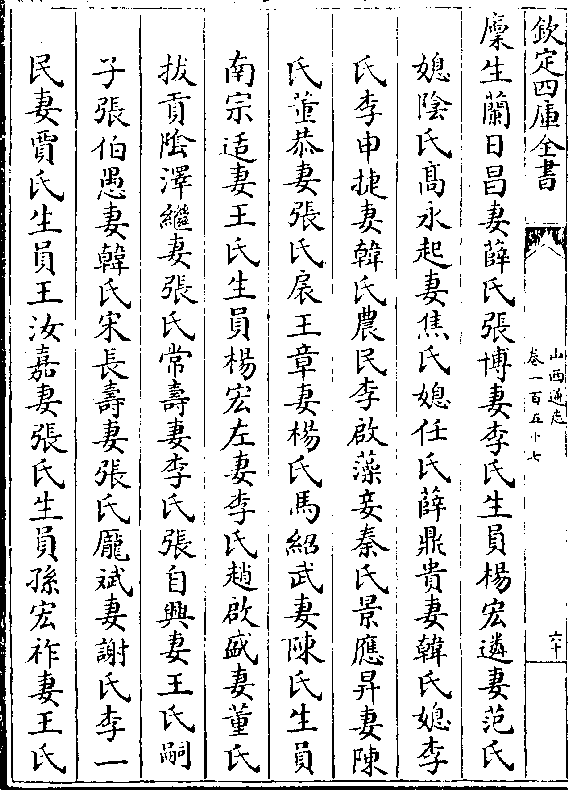 欽定四庫全書
山西通志
卷一百五十七
六十
廩生蘭日昌妻薛氏張博妻李氏生員楊宏遴妻范氏
媳陰氏高永起妻焦氏媳任氏薛鼎貴妻韓氏媳李
氏李申捷妻韓氏農民李啟藻妾秦氏景應昇妻陳
氏董恭妻張氏扆王章妻楊氏馬紹武妻陳氏生員
南宗适妻王氏生員楊宏左妻李氏趙啟盛妻董氏
拔貢陰澤繼妻張氏常壽妻李氏張自興妻王氏嗣
子張伯愚妻韓氏宋長壽妻張氏龎斌妻謝氏李一
民妻賈氏生員王汝嘉妻張氏生員孫宏祚妻王氏